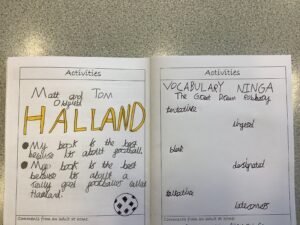 Activities
Matt and Tom
Oldfield
HALLAND
My book is the best
because its about football.
My book is the best
because its about a
really good footballer called
Halland.
Comments from an adult at home:
Activities
VOCABULARY NINGA
The Great Dream Robbery
tentative
lingered
bleak
designated
talkative